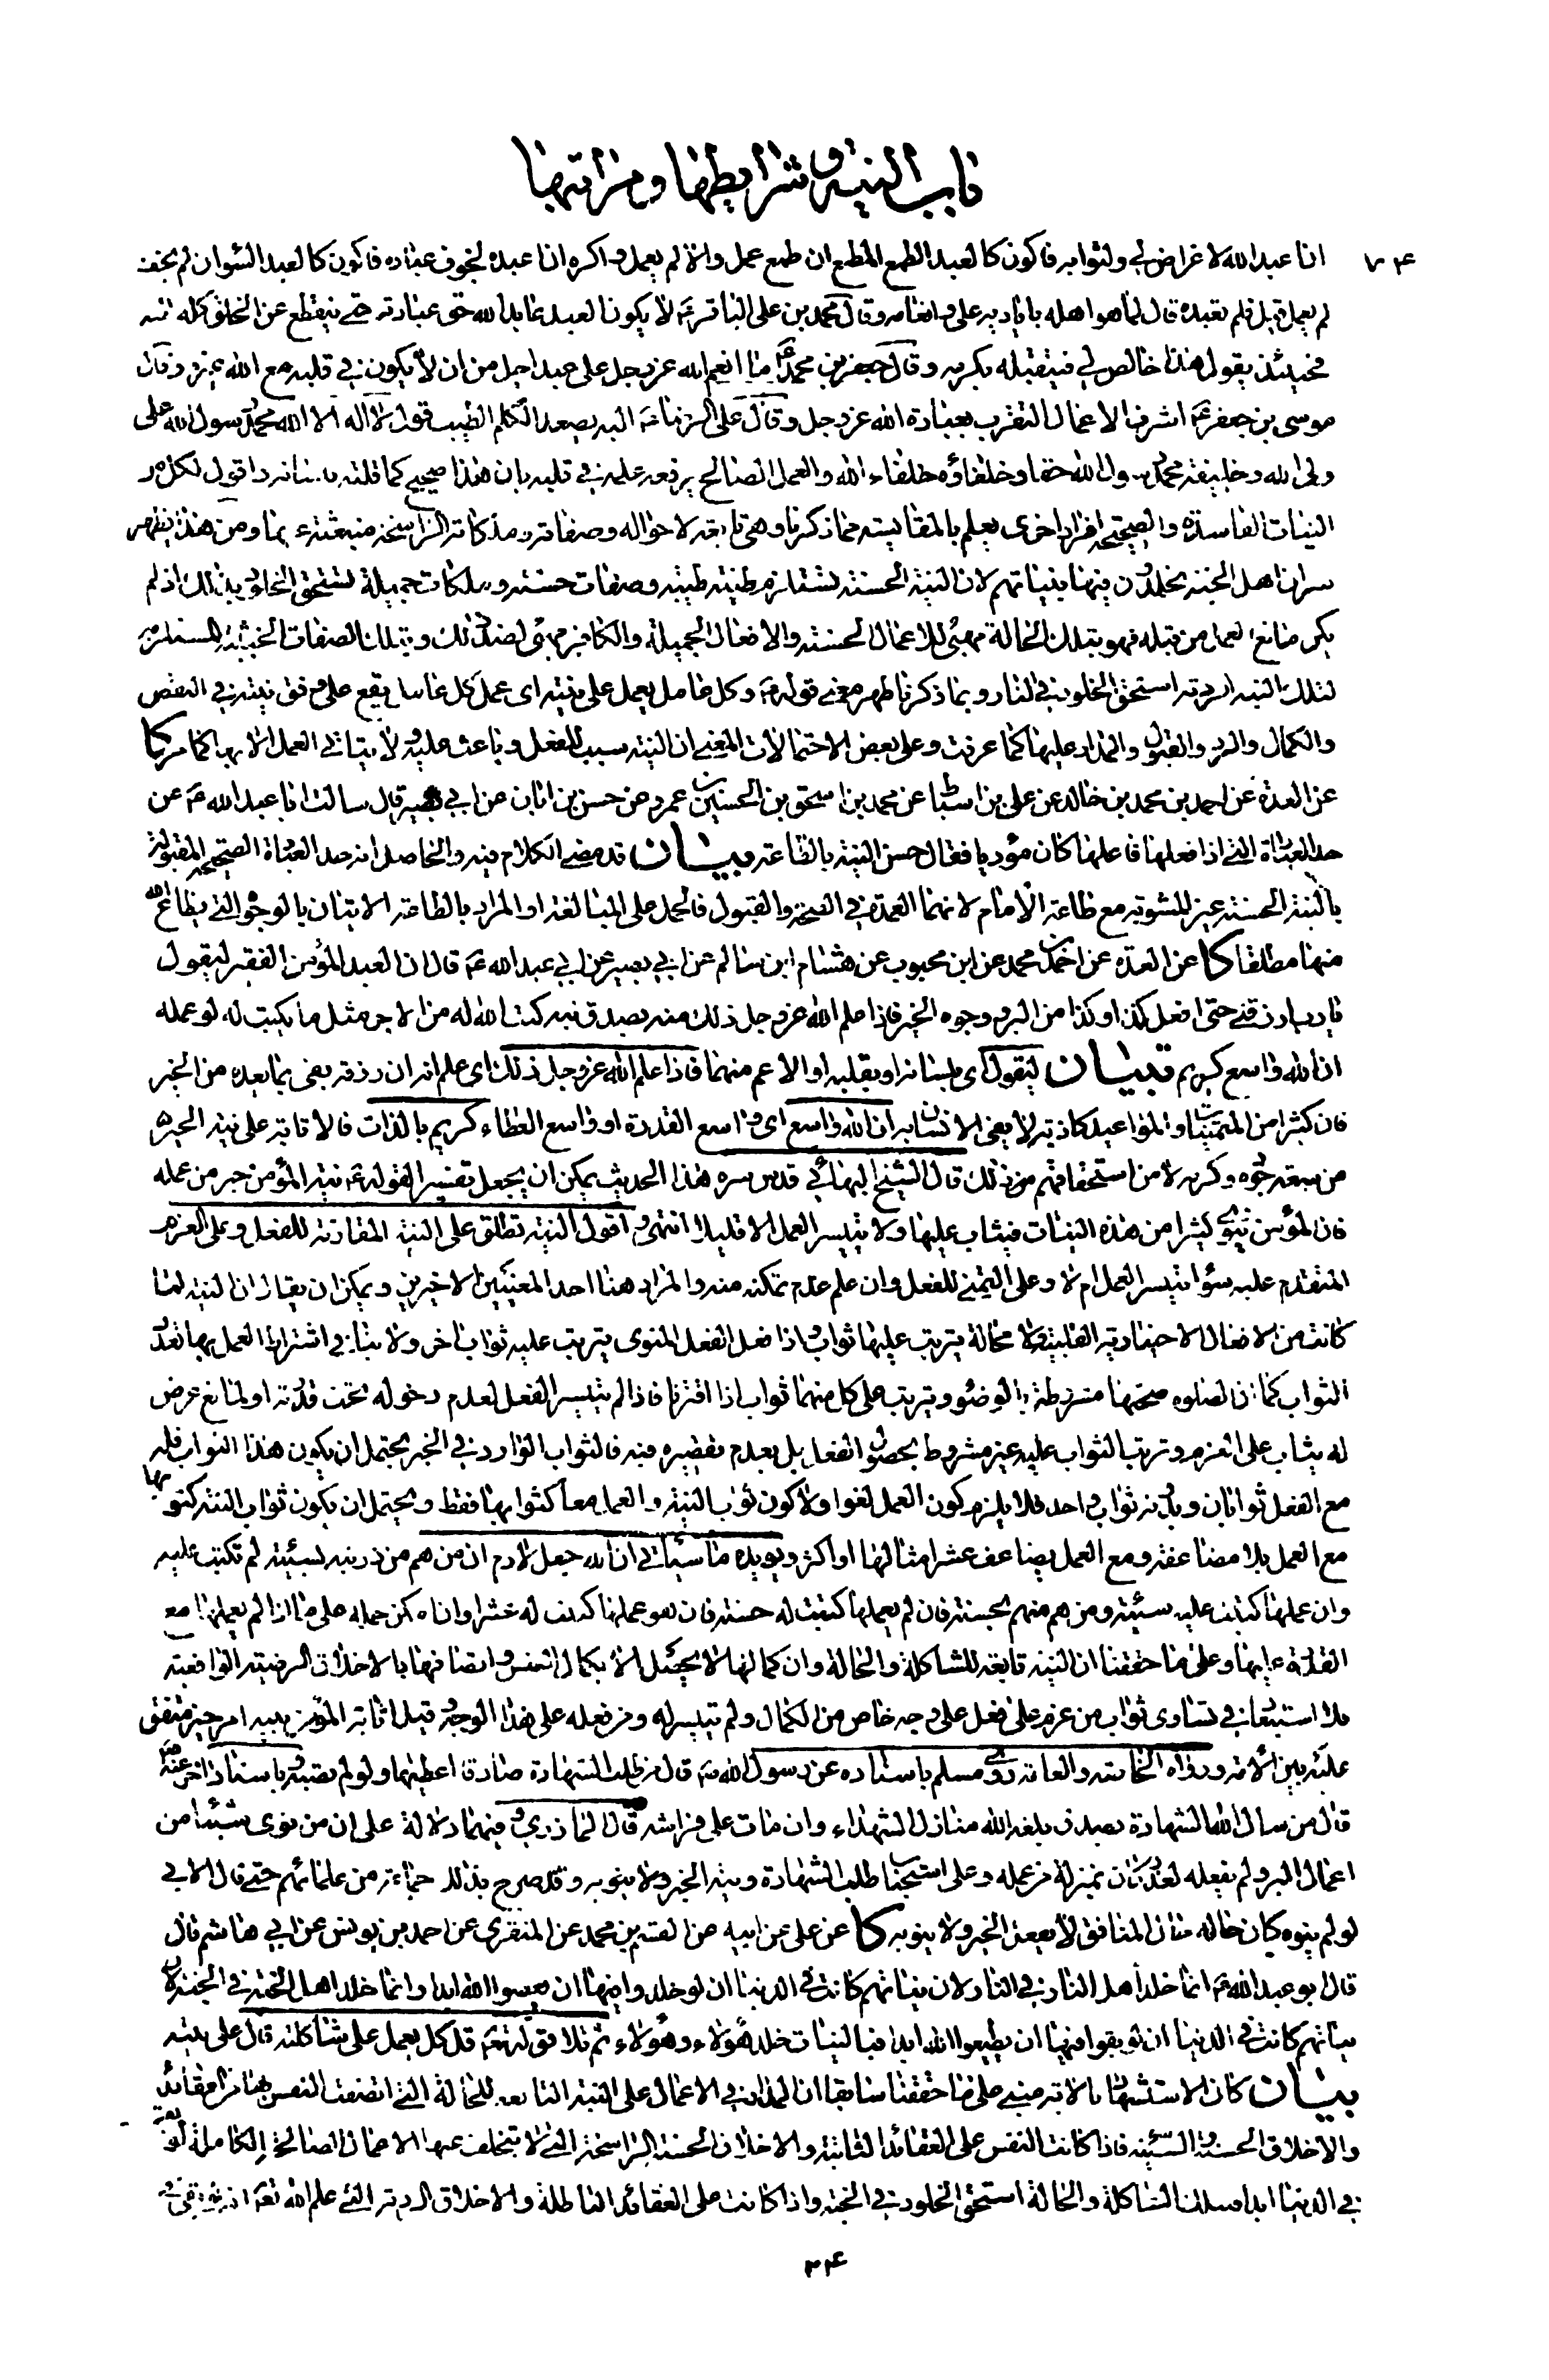 باب النية و شرايطها و مراتبها
٧٤
انا عبد الله لاغراض لي و لثوابه فاكون كالعبد الطمع المطمع ان طمع عمل و الا لم يعمل و اكره ان اعبده لخوف عقابه فاكون كالعبد السوء ان لم يخف
لم يعمل قيل فلم تعبده قال لما هو اهله باياديه علي و انعامه و قال محمد بن علي الباقر ع لا يكون العبد عابدا لله حق عبادته حتى ينقطع عن الخلق كله اليه
فحينئذ يقول هذا خالص لي فيتقبله بكرمه و قال جعفر بن محمد ع ما انعم الله عز و جل على عبد اجل من ان لا يكون في قلبه مع الله غيره و قال
موسى بن جعفر ع اشرف الاعمال التقرب بعبادة الله عز و جل و قال علي الرضا ع اليه يصعد الكلم الطيب قول لا اله الا الله محمد رسول الله علي
ولي الله و خليفة محمد رسول الله حقا و خلفاؤه خلفاء الله و العمل الصالح يرفعه علمه في قلبه بان هذا صحيح كما قلته بلسانه و اقول لكل من
النيات الفاسدة و الصحيحة افراد اخرى يعلم بالمقايسة مما ذكرنا و هي تابعة لاحواله و صفاته و ملكاته الراسخة منبعثة عنها و من هذا يظهر
سر ان اهل الجنة يخلدون فيها بنياتهم لان النية الحسنة تستلزم طينة طيبة و صفات حسنة و ملكات جميلة تستحق الخلود بذلك اذ لم
يكن مانع العمل من قبله فهو بتلك الحالة مهيئ للاعمال الحسنة و الافعال الجميلة و الكافر مهيئ لضد ذلك و بتلك الصفات الخبيثة المستلزمة
لتلك النية الردية استحق الخلود في النار و بما ذكرنا ظهر معنى قوله ع و كل عامل يعمل على نيته اي عمل كل عامل يقع على وفق نيته في النقص
و الكمال و الرد و القبول و المدار عليها كما عرفت و على بعض الاحتمالات المعنى ان النية سبب للفعل و باعث عليه و لا يتاتى العمل الا بها كما مر كا
عن العدة عن احمد بن محمد بن خالد عن علي بن اسباط عن محمد بن اسحق بن الحسين بن عمرو عن حسن بن ابان عن ابي بصير قال سالت ابا عبد الله ع عن
حد العبادة التي اذا فعلها فاعلها كان مؤديا فقال حسن النية بالطاعة بيان قد مضى الكلام فيه و الحاصل انه حد العبادة الصحيحة المقبولة
بالنية الحسنة غير المشوبة مع طاعة الامام لانهما العمدة في الصحة و القبول فالحمل على المبالغة او المراد بالطاعة الاتيان بالوجوه التي يطاع الله
منها مطلقا كا عن العدة عن احمد بن محمد عن ابن محبوب عن هشام ابن سالم عن ابي بصير عن ابي عبد الله ع قال ان العبد المؤمن الفقير ليقول
يا رب ارزقني حتى افعل كذا و كذا من البر و وجوه الخير فاذا علم الله عز و جل ذلك منه بصدق نية كتب الله له من الاجر مثل ما يكتب له لو عمله
ان الله واسع كريم بيان ليقول اي بلسانه او بقلبه او الاعم منهما فاذا علم الله عز و جل ذلك اي علم انه ان رزقه يفي بما يعده من الخير
فان كثيرا من المتمنيات و المواعيد كاذبة لا يفي الانسان به ان الله واسع اي واسع القدرة او واسع العطاء كريم بالذات فالاثابة على نية الخير
من سعة جوده و كرمه لا من استحقاقهم من ذلك قال الشيخ البهائي قدس سره هذا الحديث يمكن ان يجعل تفسيرا لقوله ع نية المؤمن خير من عمله
فان المؤمن ينوي كثيرا من هذه النيات فيثاب عليها و لا يتيسر العمل الا قليلا انتهى و اقول النية تطلق على النية المقارنة للفعل و على العزم
المتقدم عليه سواء تيسر العمل ام لا و على التمني للفعل و ان علم عدم تمكنه منه و المراد هنا احد المعنيين الاخيرين و يمكن ان يقال ان النية لما
كانت من الافعال الاختيارية القلبية فلا محالة يترتب عليها ثواب و اذا فعل الفعل المنوي يترتب عليه ثواب اخر و لا ينافي اشتراط العمل بها تعدد
الثواب كما ان الصلوة صحتها مشروطة بالوضوء و يترتب على كل منهما ثواب اذا اقترنا فاذا لم يتيسر الفعل لعدم دخوله تحت قدرته او لمانع عرض
له يثاب على العزم و ترتب الثواب عليه غير مشروط بحصول الفعل بل بعدم تقصيره فيه فالثواب الوارد في الخبر يحتمل ان يكون هذا الثواب فله
مع الفعل ثوابان و بدونه ثواب واحد فلا يلزم كون العمل لغوا و لا كون ثواب النية و العمل معا كثوابها فقط و يحتمل ان يكون ثواب النية كثوابها
مع العمل بلا مضاعفة و مع العمل يضاعف عشر امثالها او اكثر و يؤيده ما سياتي ان الله جعل لادم ان من هم من ذريته بسيئة لم تكتب عليه
و ان عملها كتبت عليه سيئة و من هم منهم بحسنة فان لم يعملها كتبت له حسنة فان هو عملها كتبت له عشرا و ان امكن حمله على ما اذا لم يعملها مع
القدرة عليها و على ما حققنا ان النية تابعة للشاكلة و الحالة و ان كمالها لا يحصل الا بكمال النفس و اتصافها بالاخلاق الرضية الواقعية
فلا استبعاد في تساوي ثواب من عزم على فعل على وجه خاص من الكمال و لم يتيسر له و من فعله على هذا الوجه قيل اثابة المؤمن بنية امر خير متفق
عليه بين الامة و رواه الخاصة و العامة روى مسلم باسناده عن رسول الله ص قال من طلب الشهادة صادقا اعطيها و لو لم تصبه و باسناد اخر عنه ص
قال من سال الله الشهادة بصدق بلغه الله منازل الشهداء و ان مات على فراشه قال المازري و فيهما دلالة على ان من نوى شيئا من
اعمال البر و لم يفعله لعذر كان بمنزلة من عمله و على استحباب طلب الشهادة و نية الخير و قد صرح بذلك جماعة من علمائهم حتى قال الابي
لو لم ينوه كان حاله حال المنافق لا يفعل الخير و لا ينويه كا عن علي عن ابيه عن القسم بن محمد عن المنقري عن احمد بن يونس عن ابي هاشم قال
قال ابو عبد الله ع انما خلد اهل النار في النار لان نياتهم كانت في الدنيا ان لو خلدوا فيها ان يعصوا الله ابدا و انما خلد اهل الجنة في الجنة لان
نياتهم كانت في الدنيا ان لو بقوا فيها ان يطيعوا الله ابدا فبالنيات خلد هؤلاء و هؤلاء ثم تلا قوله تع قل كل يعمل على شاكلته قال على نيته
بيان كان الاستشهاد بالاية مبني على ما حققنا سابقا ان المدار في الاعمال على النية التابعة للحالة التي اتصفت النفس بها من العقائد
و الاخلاق الحسنة و السيئة فاذا كانت النفس على العقائد الثابتة و الاخلاق الحسنة الراسخة التي لا يتخلف عنها الاعمال الصالحة الكاملة لو بقي
في الدنيا ابدا فبتلك الشاكلة و الحالة استحق الخلود في الجنة و اذا كانت على العقائد الباطلة و الاخلاق الردية التي علم الله تع انه لو بقي في
٣٤